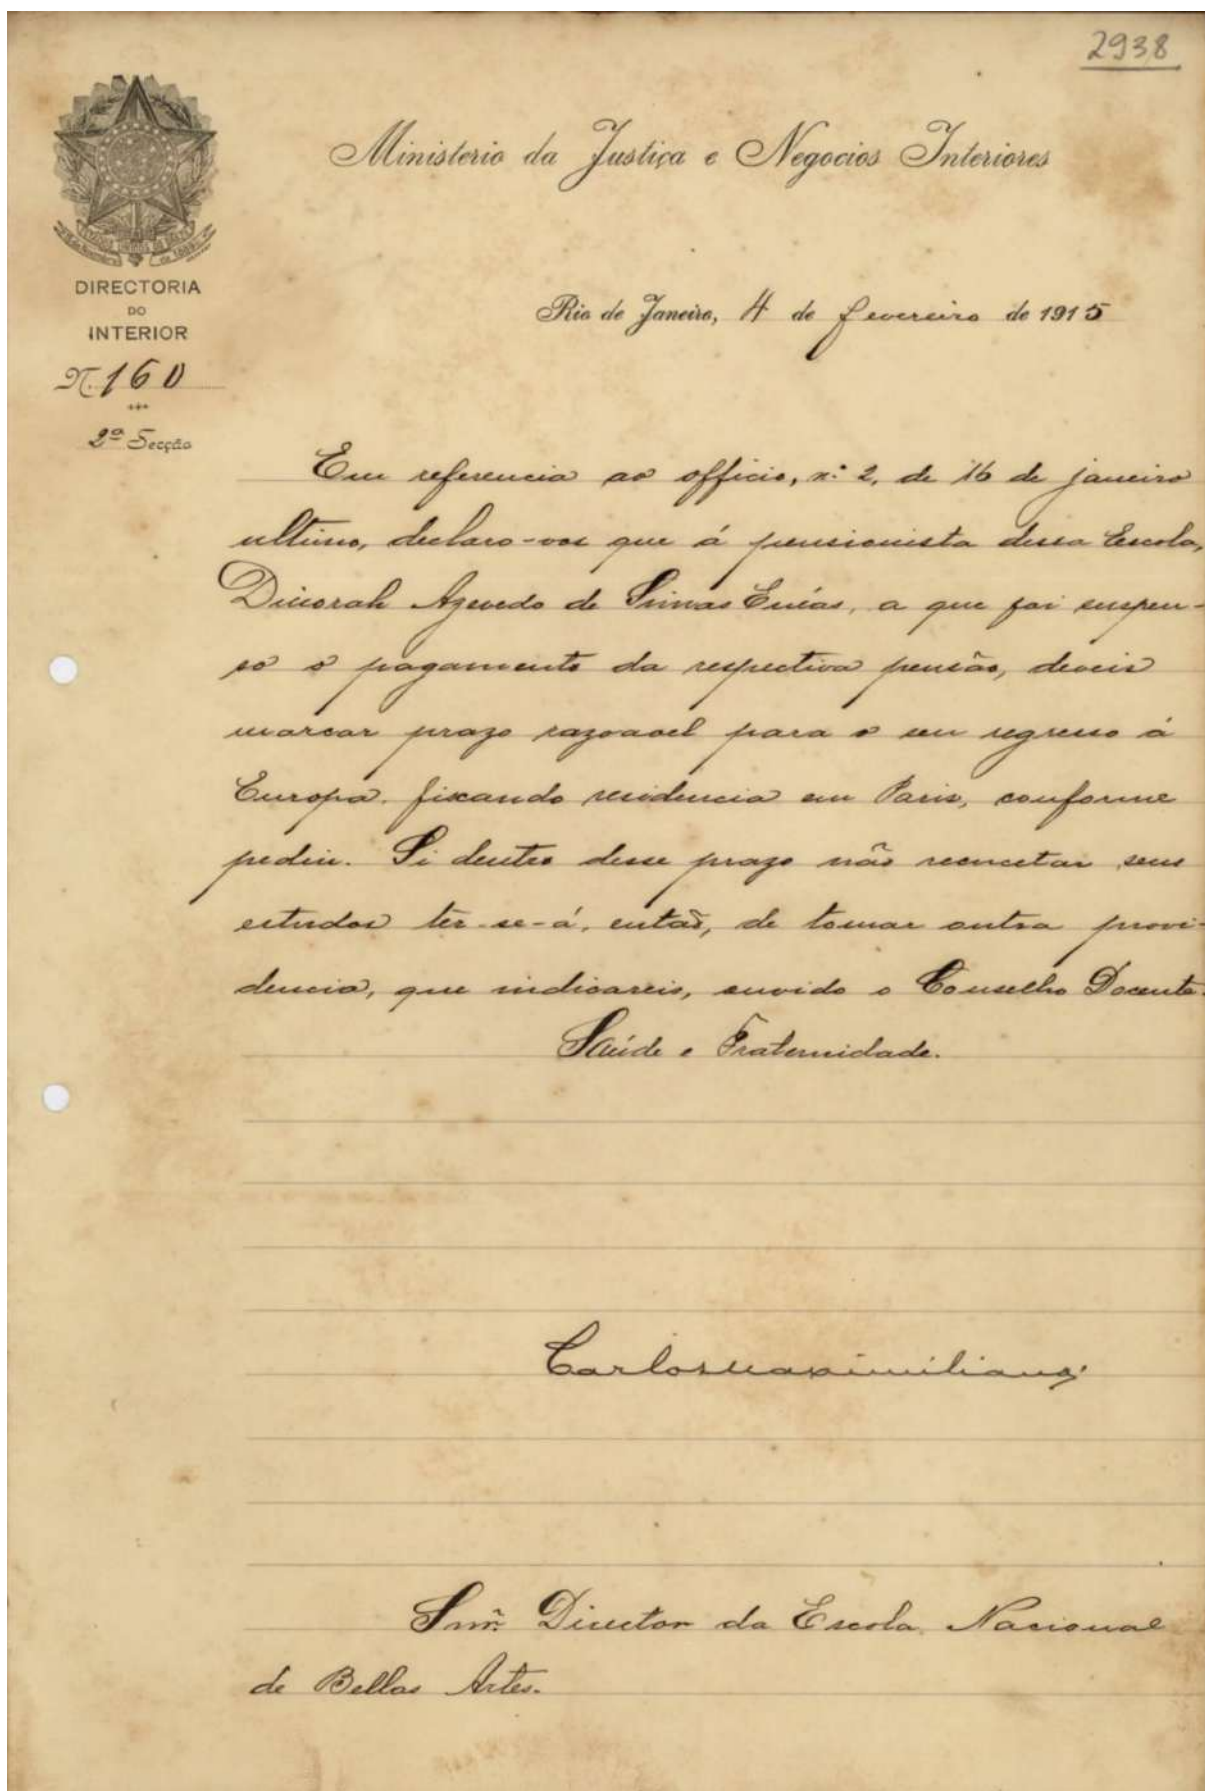 2938
Ministerio da Justiça e Negocios Interiores
DIRECTORIA
DO
INTERIOR
N. 160
2ª Secção
Rio de Janeiro, 4 de fevereiro de 1915
Em referencia ao officio, n.º 2, de 16 de janeiro
ultimo, declaro-vos que á pensionista dessa Escola,
Dinorah Azevedo de Simas Enéas, a que foi suspen-
so o pagamento da respectiva pensão, deveis
marcar prazo razoavel para o seu regresso á
Europa, fixando residencia em Paris, conforme
pediu. Si dentro desse prazo não reencetar seus
estudos ter-se-á, então, de tomar outra provi-
dencia, que indicareis, ouvido o Conselho Docente.
Saúde e Fraternidade.
Carlos Maximiliano
Snr. Director da Escola Nacional
de Bellas Artes.